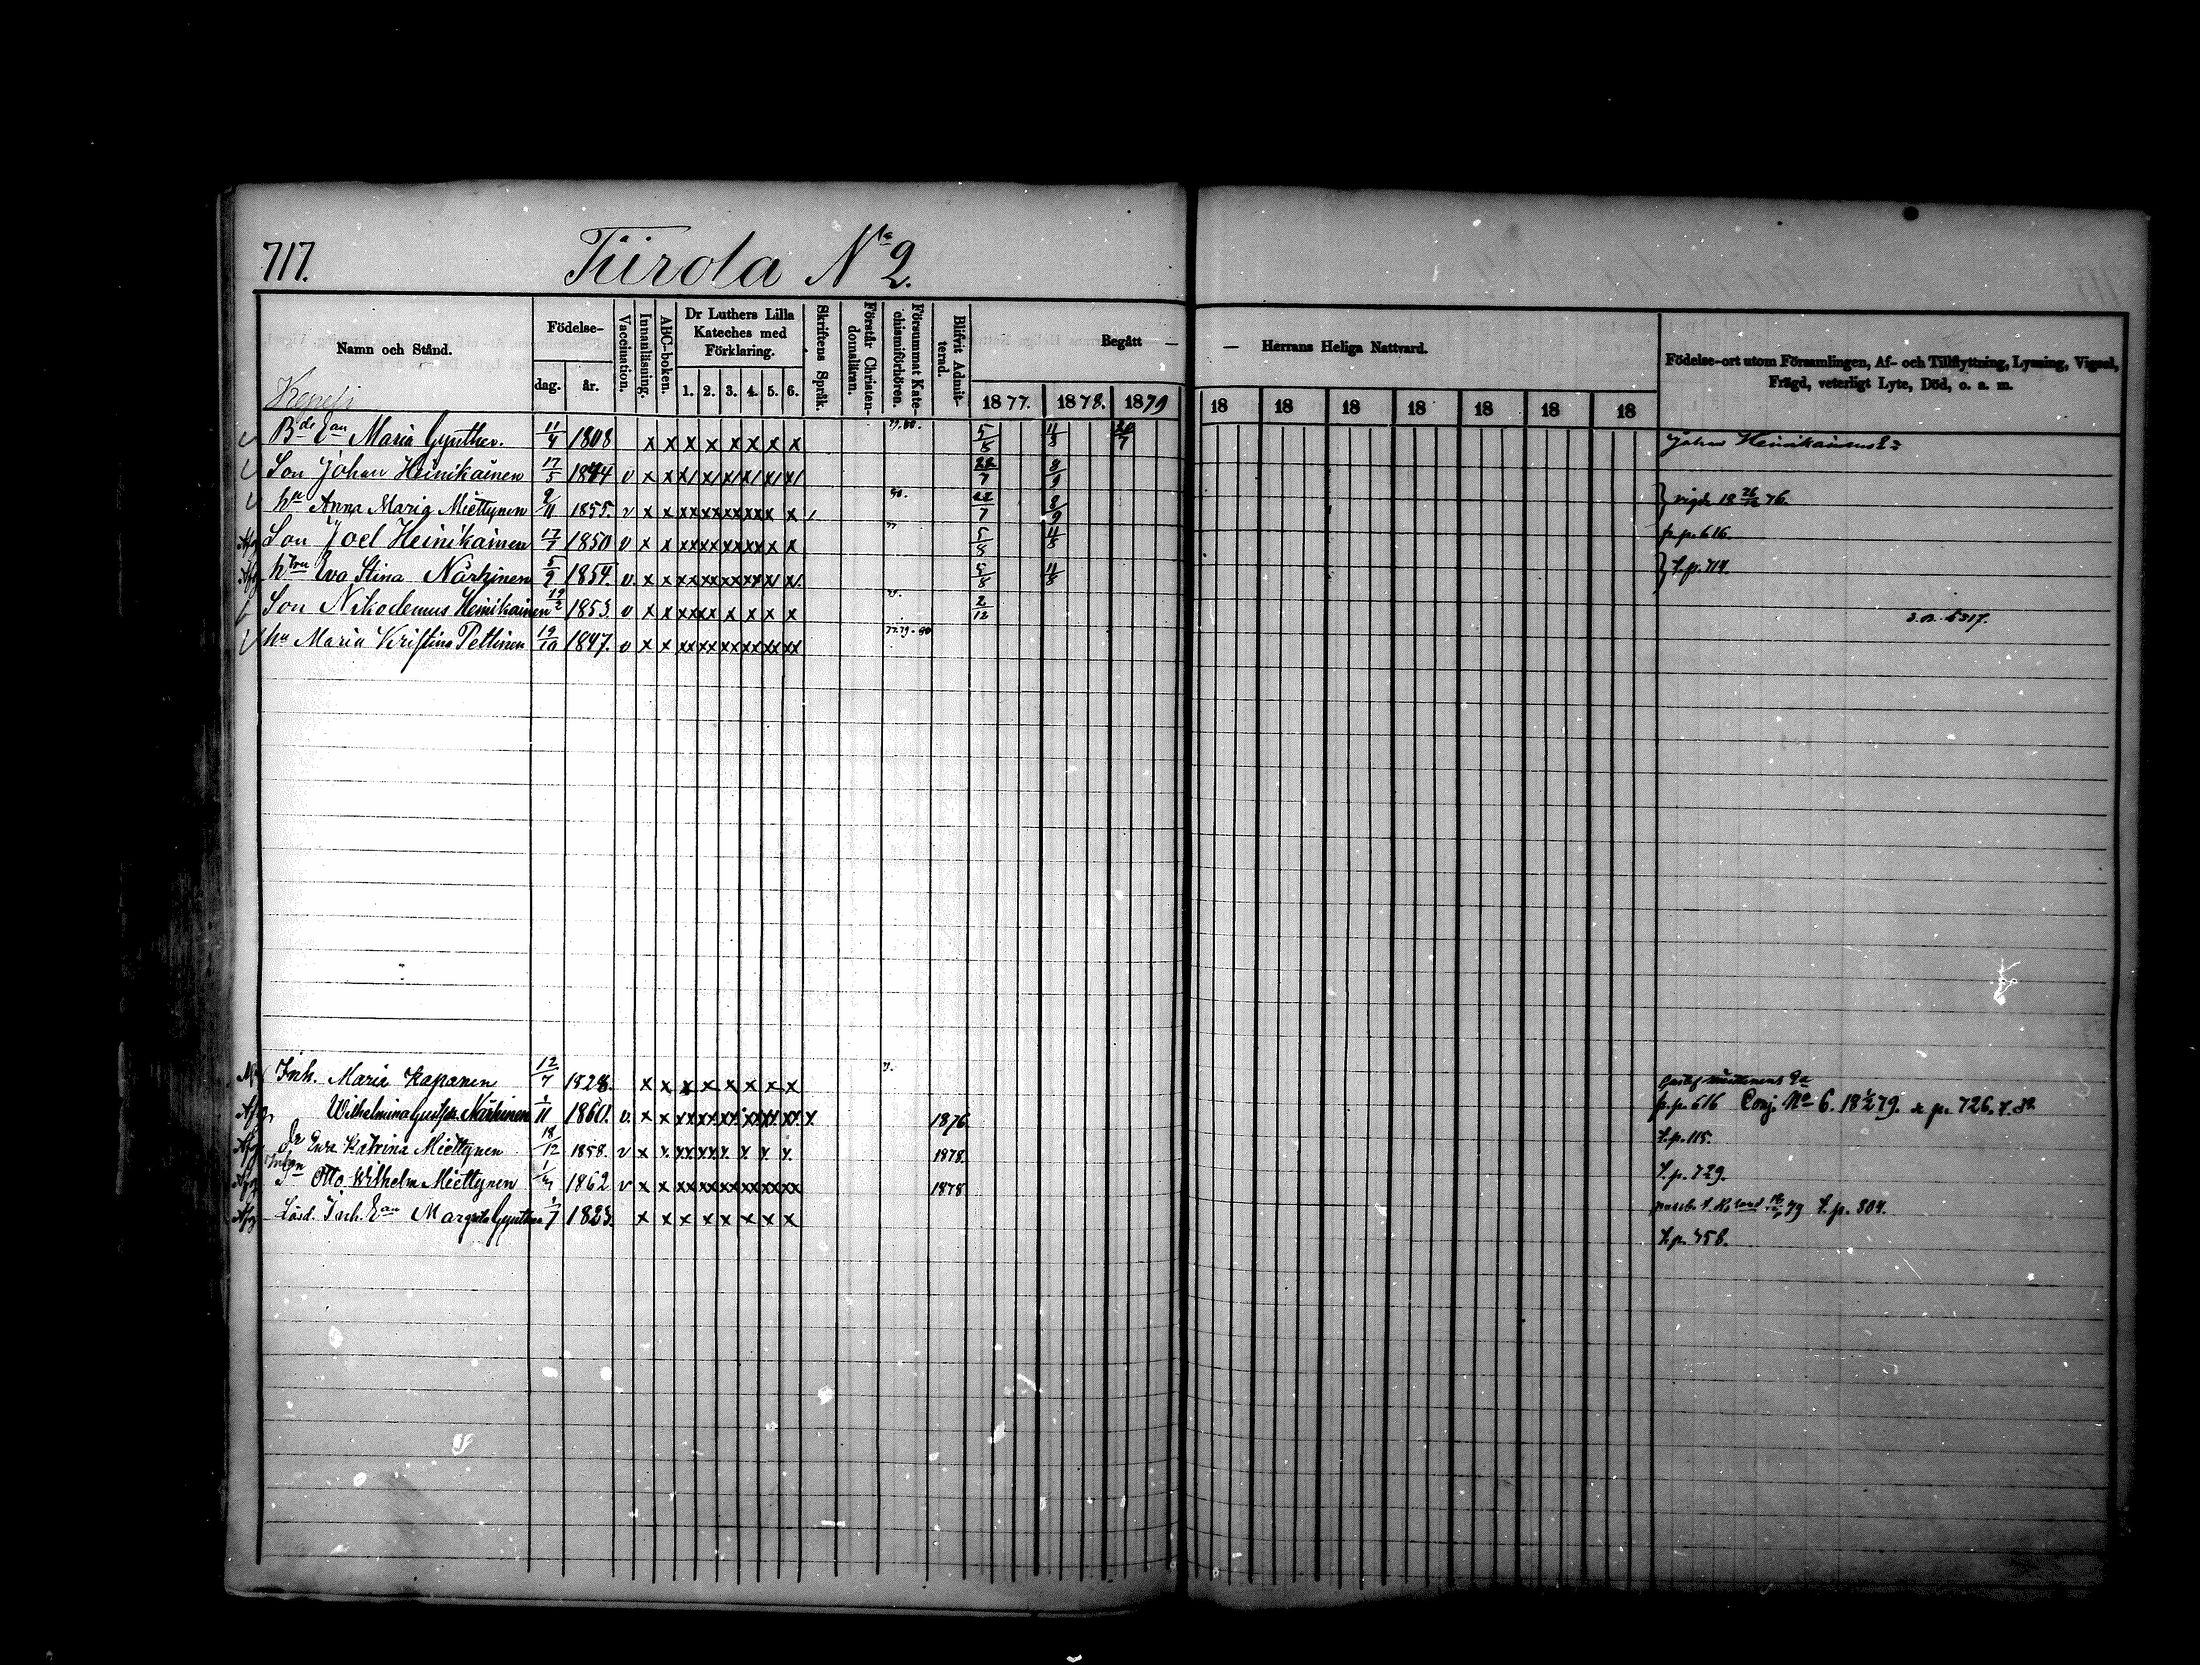 717.
Tiirola No 2.
Namn och Stånd.
Födelse-
dag.
år.
Vaccination.
Innanläsning.
ABC-boken.
Dr Luthers Lilla
Kateches med
Förklaring.
1. 2. 3. 4. 5. 6.
Skriftens Språk.
Förstår Christen-
domsläran.
Försummat Kate-
chismiförhören.
Blifvit Admit-
terad.
Begått —
— Herrans Heliga Nattvard.
1877. 1878. 1879 18 18 18 18 18 18 18
Födelse-ort utom Församlingen, Af- och Tillflyttning, Lysning, Vigsel,
Frägd, veterligt Lyte, Död, o. a. m.
Bde Ean Maria Gynther. 11/4 1808 x x x x x x x x 5/8 11/8
Johan Heinikainens
Son Johan Heinikainen 17/5 1844 v x x x x x x x x 22/7 8/9
hu Anna Maria Miettynen 2/11 1855. v x x xx xx xx xx x x 22/7 8/9
vigde 18 26/12 76.
Son Joel Heinikainen 17/7 1850 v x x xx xx xx xx x x 5/8 11/8
fr. p. 616
htru Eva Stina Närhinen 5/9 1854. v. x x 5/8 11/8
t. p. 714.
Son Nikodemus Heinikainen 19/2 1853. v x x xx xx x x x x 2/12
hu Maria Kristina Pettinen 19/10 1847. v x x xx xx xx xx xx xx 77.79.80
s. B. 5317.
Inh. Maria Kapanen 12/7 1828. x x x x x x x x
Wilhelmina Gustfsdr Närhinen 1/11 1860. v. x x xx xx xx xx xx xx x 1876
fr. p. 616 Conj. No 6. 18 1/2 79. p. 726.
Dr Eva Katrina Miettynen 18/12 1858. v x x 1878.
t. p. 115.
Sn Otto Wilhelm Miettynen 1862 v x x xx xx xx xx xx xx 1878
t. p. 729.
Lösd. Inh. Ean Margreta Gynther 1/7 1823. x x x x x x x x
79 t. p. 804.
t. p. 758.